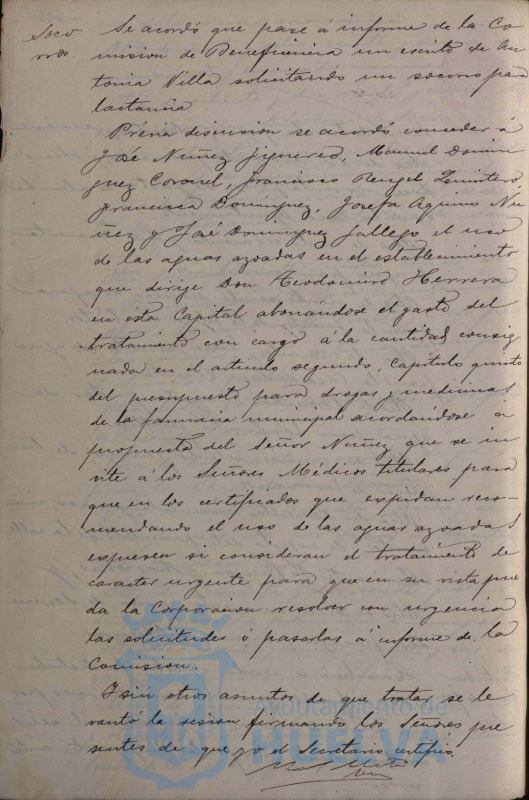 Soco
rros.
Se acordó que pase á informe de la Co
mision de Beneficencia un escrito de An
tonia Villa solicitando un socorro para
lactancia
Prévia discusion se acordó conceder á
José Nuñez Figuereo, Manuel Domin
guez Coronel, Francisco Rengel Quintero,
Francisca Dominguez, Josefa Aquino Nu
ñez y José Dominguez Gallego el uso
de las aguas azoadas en el establecimiento
que dirige Don Teodomiro Herrera
en ésta Capital abonandose el gasto del
tratamiento con cargo á la cantidad consig
nada en el articulo segundo, Capitulo quinto
del presupuesto para drogas y medicinas
de la farmacia municipal acordándose á
propuesta del Señor Nuñez que se in
vite á los Señores Médicos titulares para
que en los certificados que expidan reco-
mendando el uso de las aguas azoadas
expresen si consideran el tratamiento de
caracter urgente para que en su vista pue
da la Corporacion resolver con urgencia
las solicitudes ó pasarlas á informe de la
Comision.
Y sin otros asuntos de que tratar se le
vantó la sesion firmando los Señores pre
sentes de que yo el Secretario certifico.
Ayuntamiento de
HUELVA